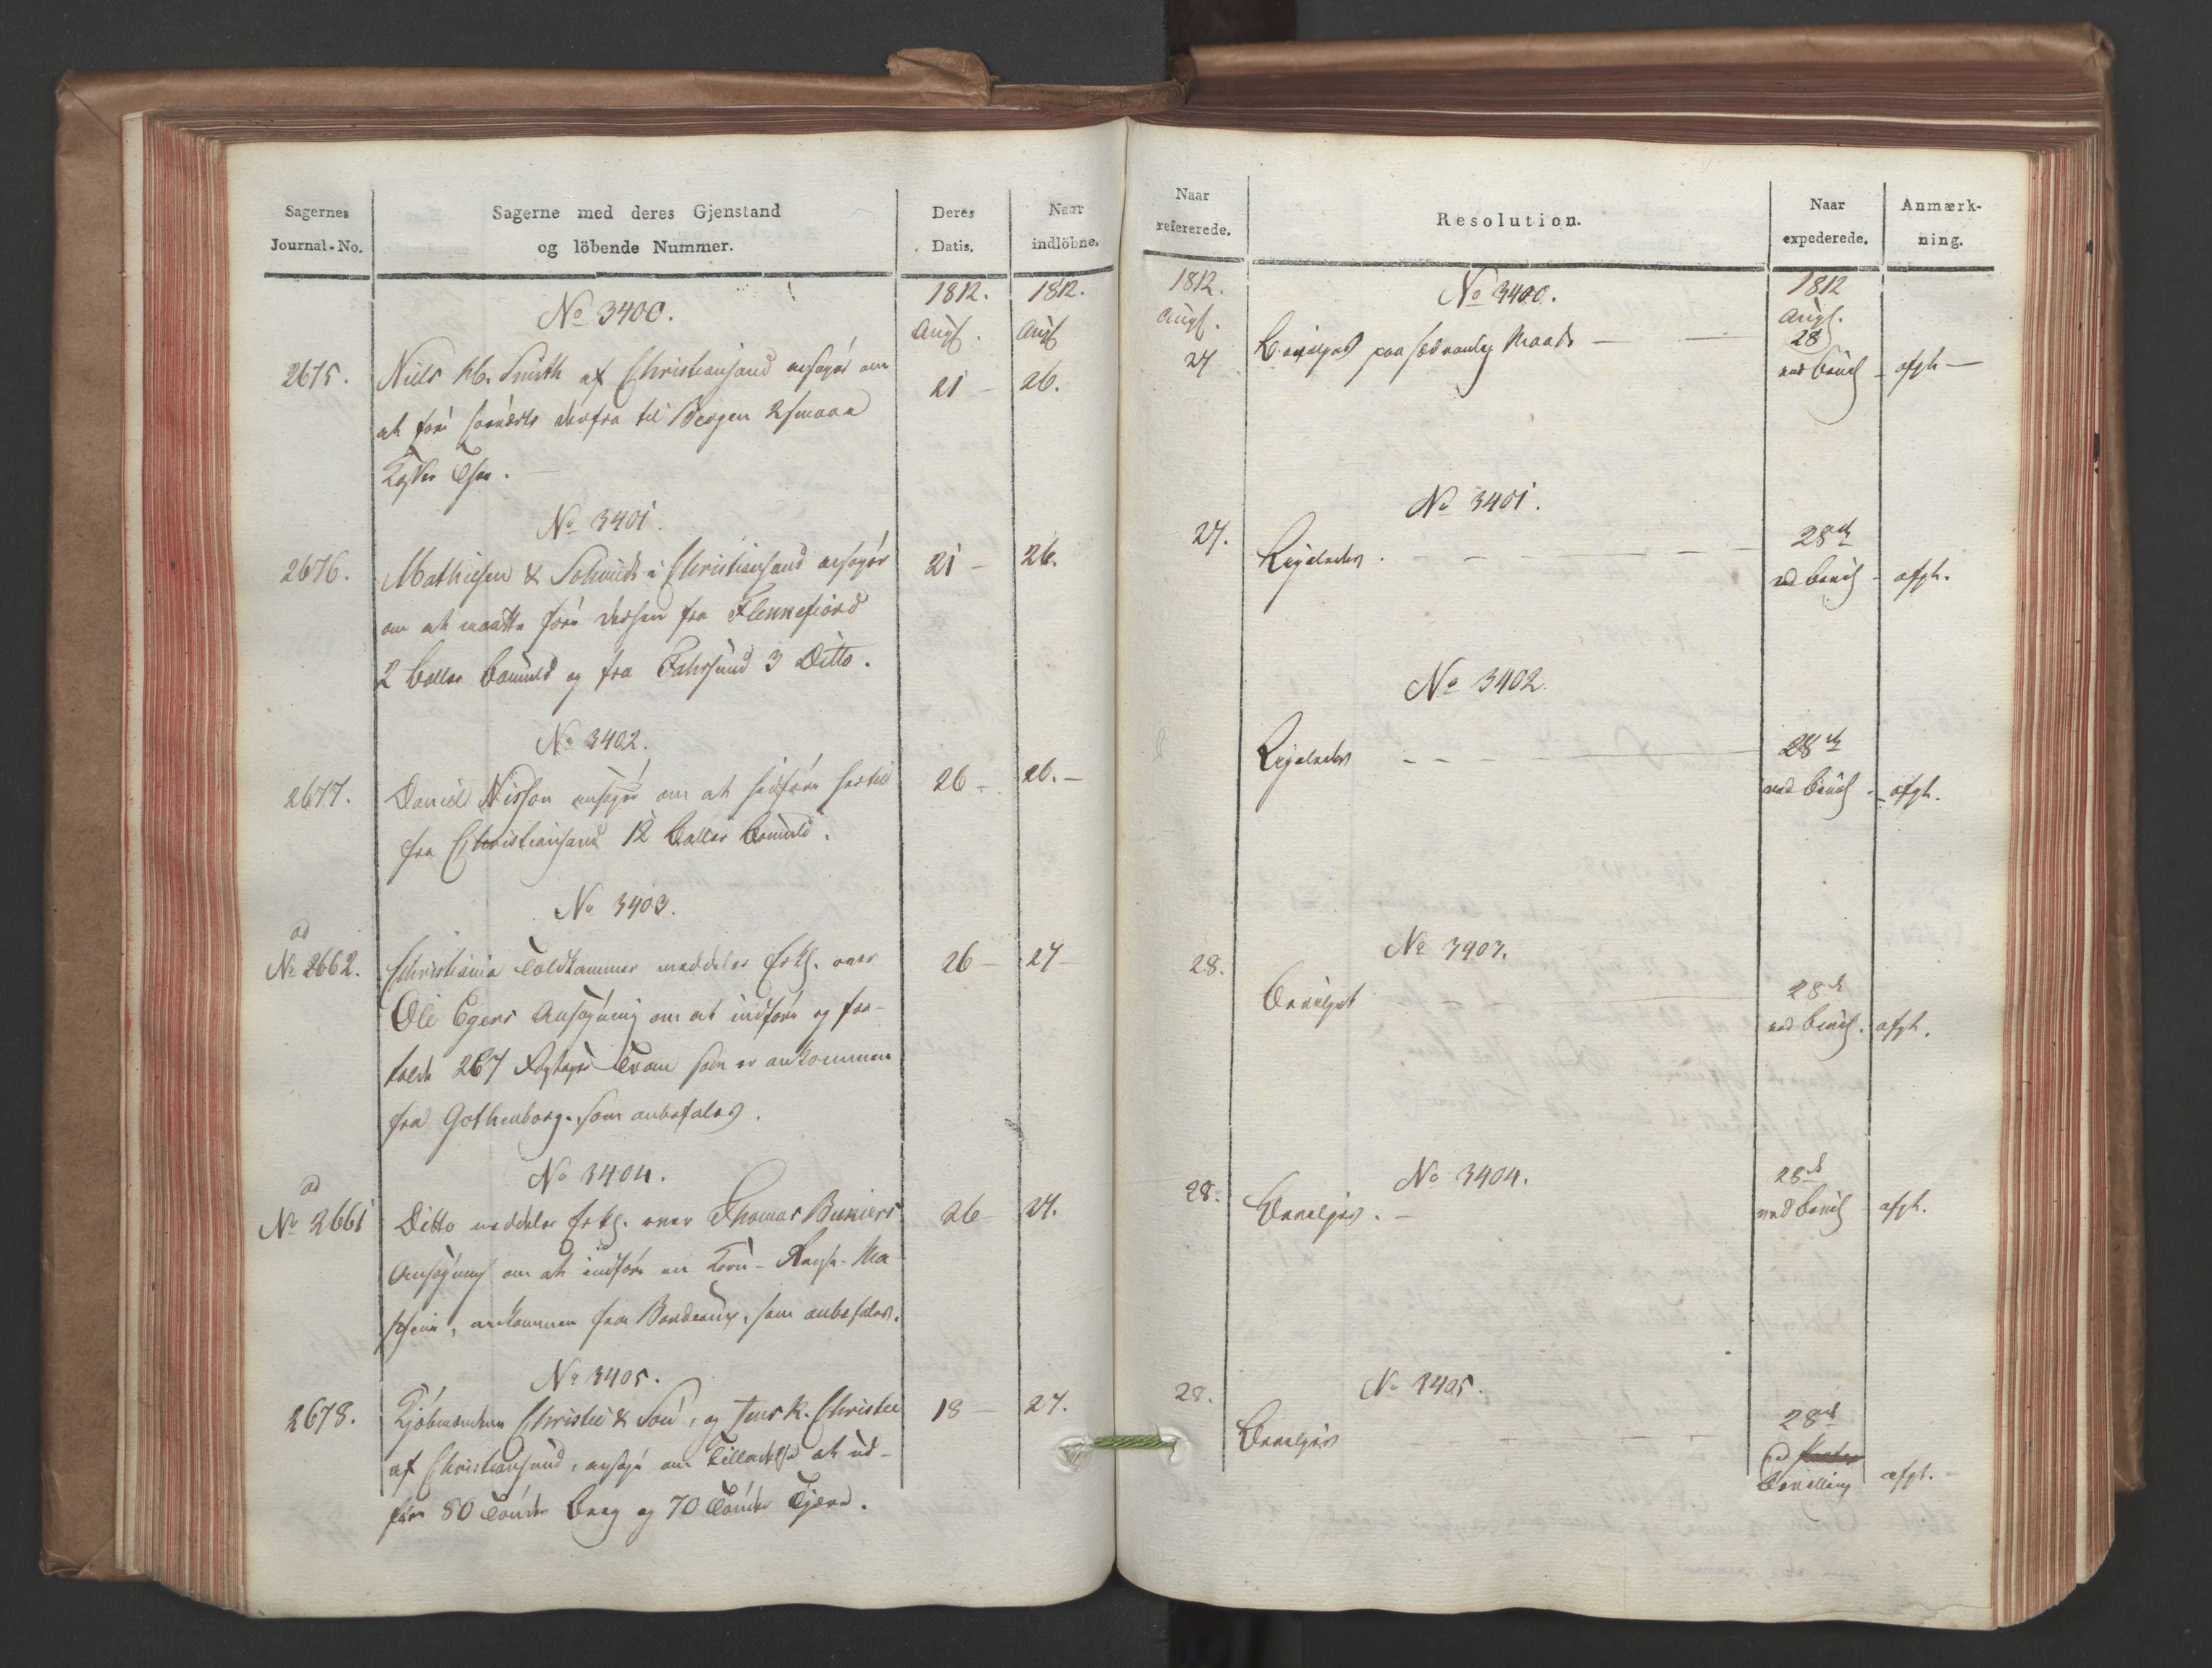 Sagernes
Journal-No.
Sagerne med deres Gjenstand
og löbende Nummer.
Deres
Datis.
Naar
indlöbne.
1812. 1812.
Augs. Augs
No 3400.
2675. Niels Smith af Christiansand ansøger om 21 - 26.
at føre søeværts derfra til Bergen 2 smaae
Kister Thee.
No 3401.
2676. Mathiesen & Schmidt i Christiansand ansøger 21 - 26.
om at maatte føre dertil fra Flekkefiord
2 Baller Bomuld og fra Fahrsund 3 Ditto.
No 3402.
2677. Daniel Nisson ansøger om at hidføre hertil 26 - 26. -
fra Christiansand 12 Baller Bomuld.
No 3403.
ad
No 2662. Christiania Toldkammer meddeler Erkl. over 26 - 27 -
Ole Egers Ansøgning om at indføre og for-
tolde 267 Tran som er ankommen
fra Gothenborg. som anbefales.
No 3404.
ad
No 2661 Ditto meddeler Erkl. over Thomas Bukiers 26 - 27.
Ansøgning om at indføre en Korn-Rense-Ma-
schine, ankommen fra Bordeaux, som anbefales.
No 3405.
2678. Kjøbmændene Christie & Søn, og Jens K. Christie 18 - 27.
af Christiansund, ansøge om Tilladelse at ud-
føre 80 Tønder Beeg og 70 Tønder Tjære.
Naar
refererede.
Resolution.
Naar
expederede.
Anmærk-
ning.
1812. No 3400. 1812
Augs. Augs.
27 Bevilges paa sædvanlig Maade - 28
ved Bevil - afgk -
No 3401.
27. Ligeledes. - 28de
ved Bevil - afgk.
No 3402.
Ligeledes - 28de
ved Bevil - afgk.
No 3403.
28. Bevilget - 28de
ved Bevil. afgk.
No 3404.
28. Bevilges. - 28de
ved Bevil - afgk.
No 3405.
28. Bevilges - 28de
ved
Bevilling afgk.